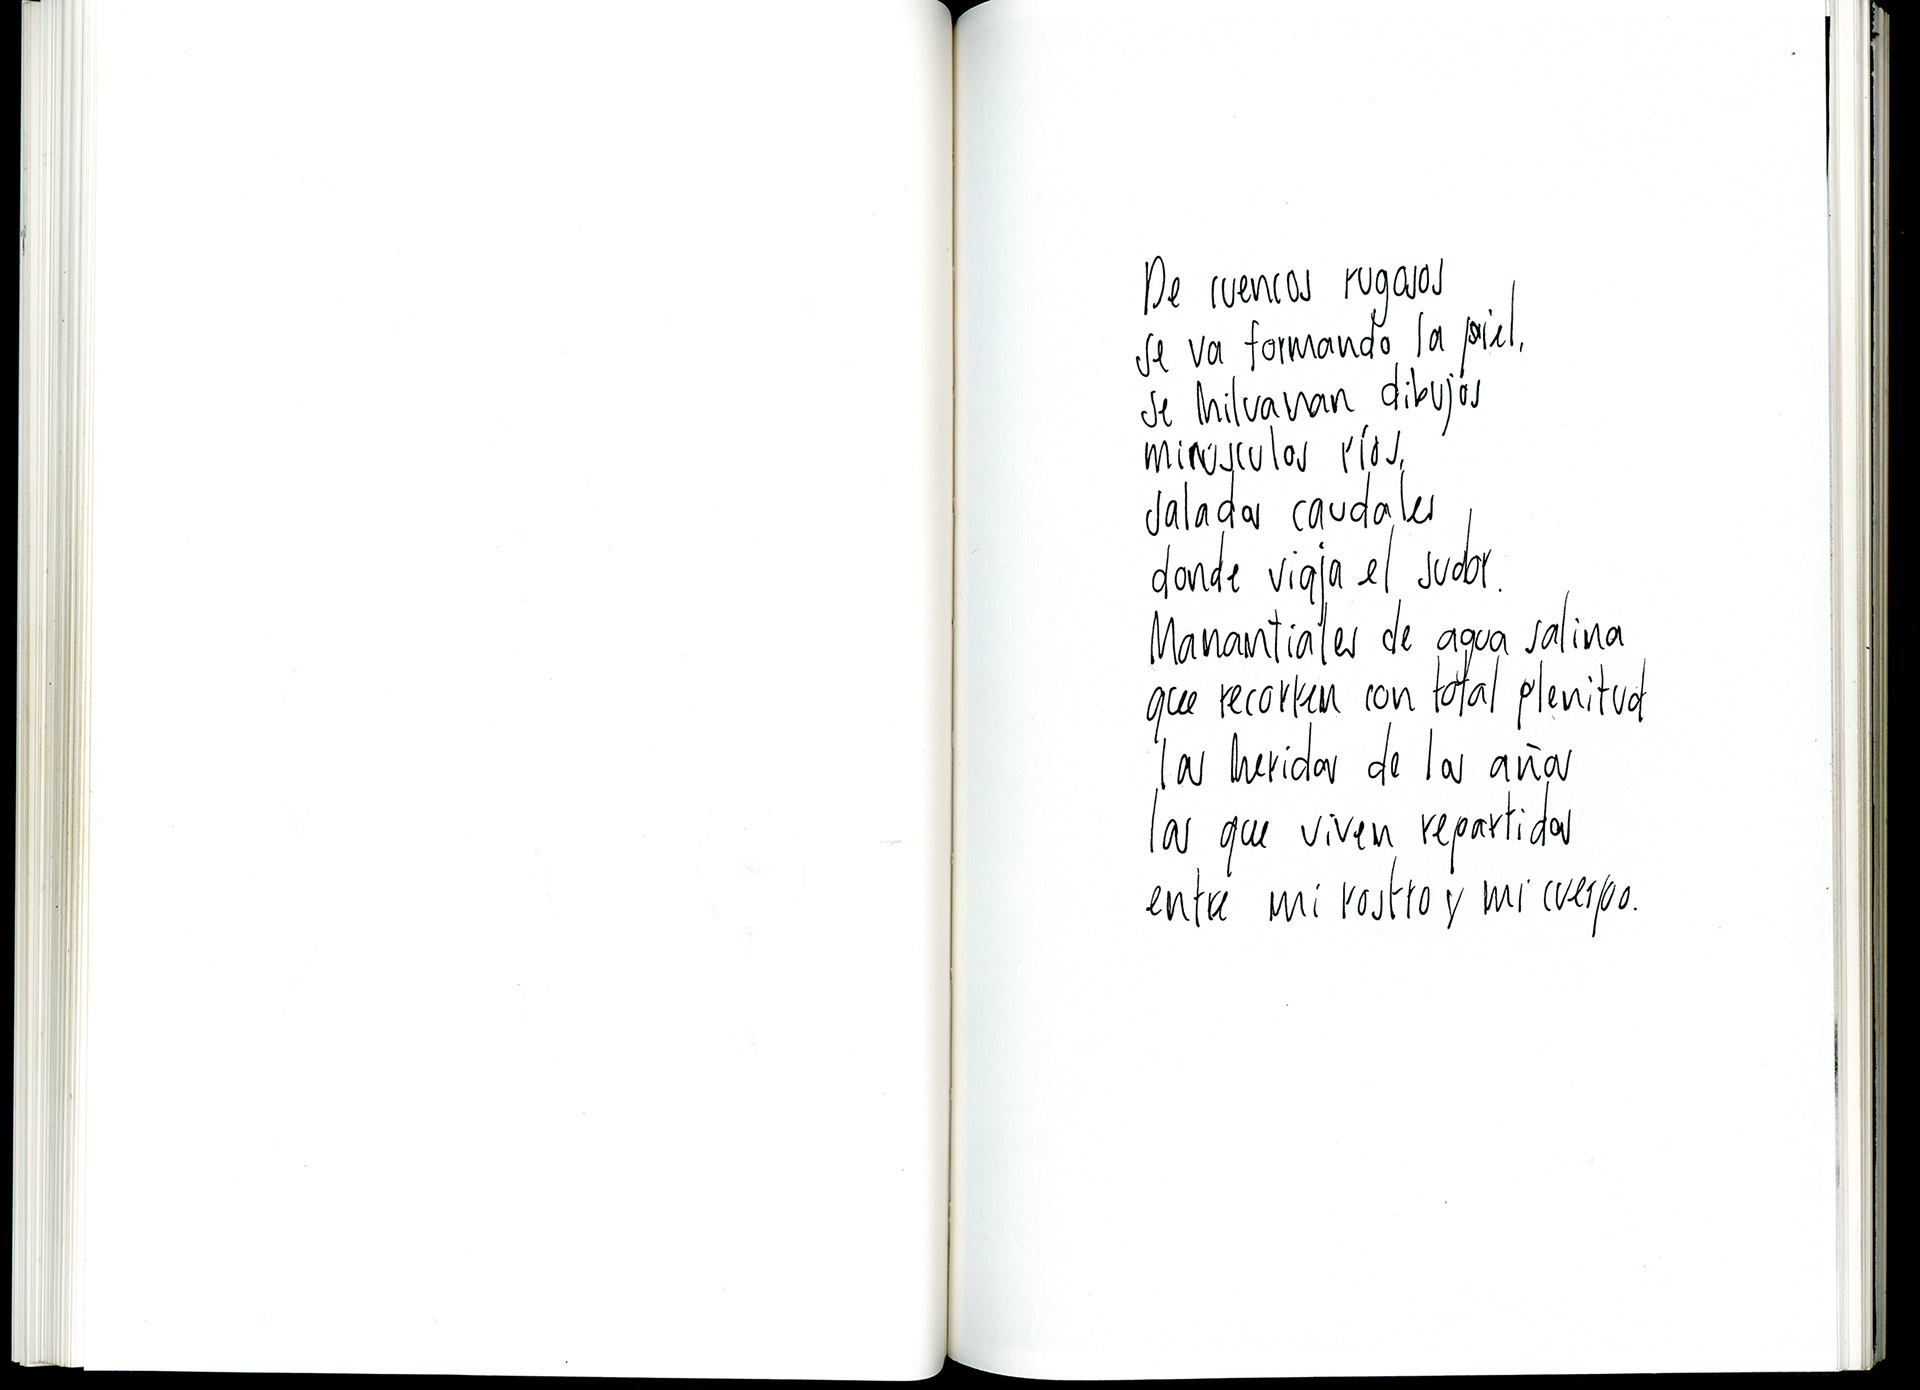 De cuencos rugosos
se va formando la piel,
se hilvanan dibujos
minúsculos ríos,
salados caudales
donde viaja el sudor.
Manantiales de agua salina
que recorren con total plenitud
las heridas de los años
las que viven repartidas
entre mi rostro y mi cuerpo.